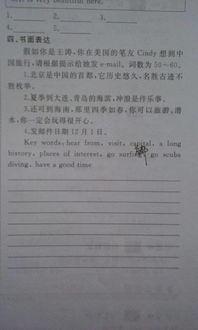 is very beautiful here.
1. 2. 3.
4. 5.
四、书面表达
假如你是王涛,你在美国的笔友 Cindy 想到中
国旅行,请根据提示给她发 e-mail。词数为 50~60。
1.北京是中国的首都,它历史悠久,名胜古迹不
胜枚举。
2.夏季到大连、青岛的海滨,冲浪是件乐事。
3.还可到海南,那里四季如春,你可以旅游、潜
水,你一定会玩得很开心。
4.发邮件日期 12 月 1 日。
Key words: hear from, visit, capital, a long
history, places of interest, go surfing, go scuba
diving, have a good time